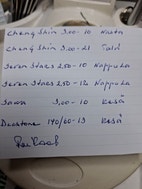 Cheng Shin 3.00-10 Nasta
Cheng Shin 3.00-21 Talvi
Seven Stars 2.50-10 Nappula
Seven Stars 2.50-12 Nappula
Sawa 3.00-10 Kesä
Deestone 140/60-13 Kesä